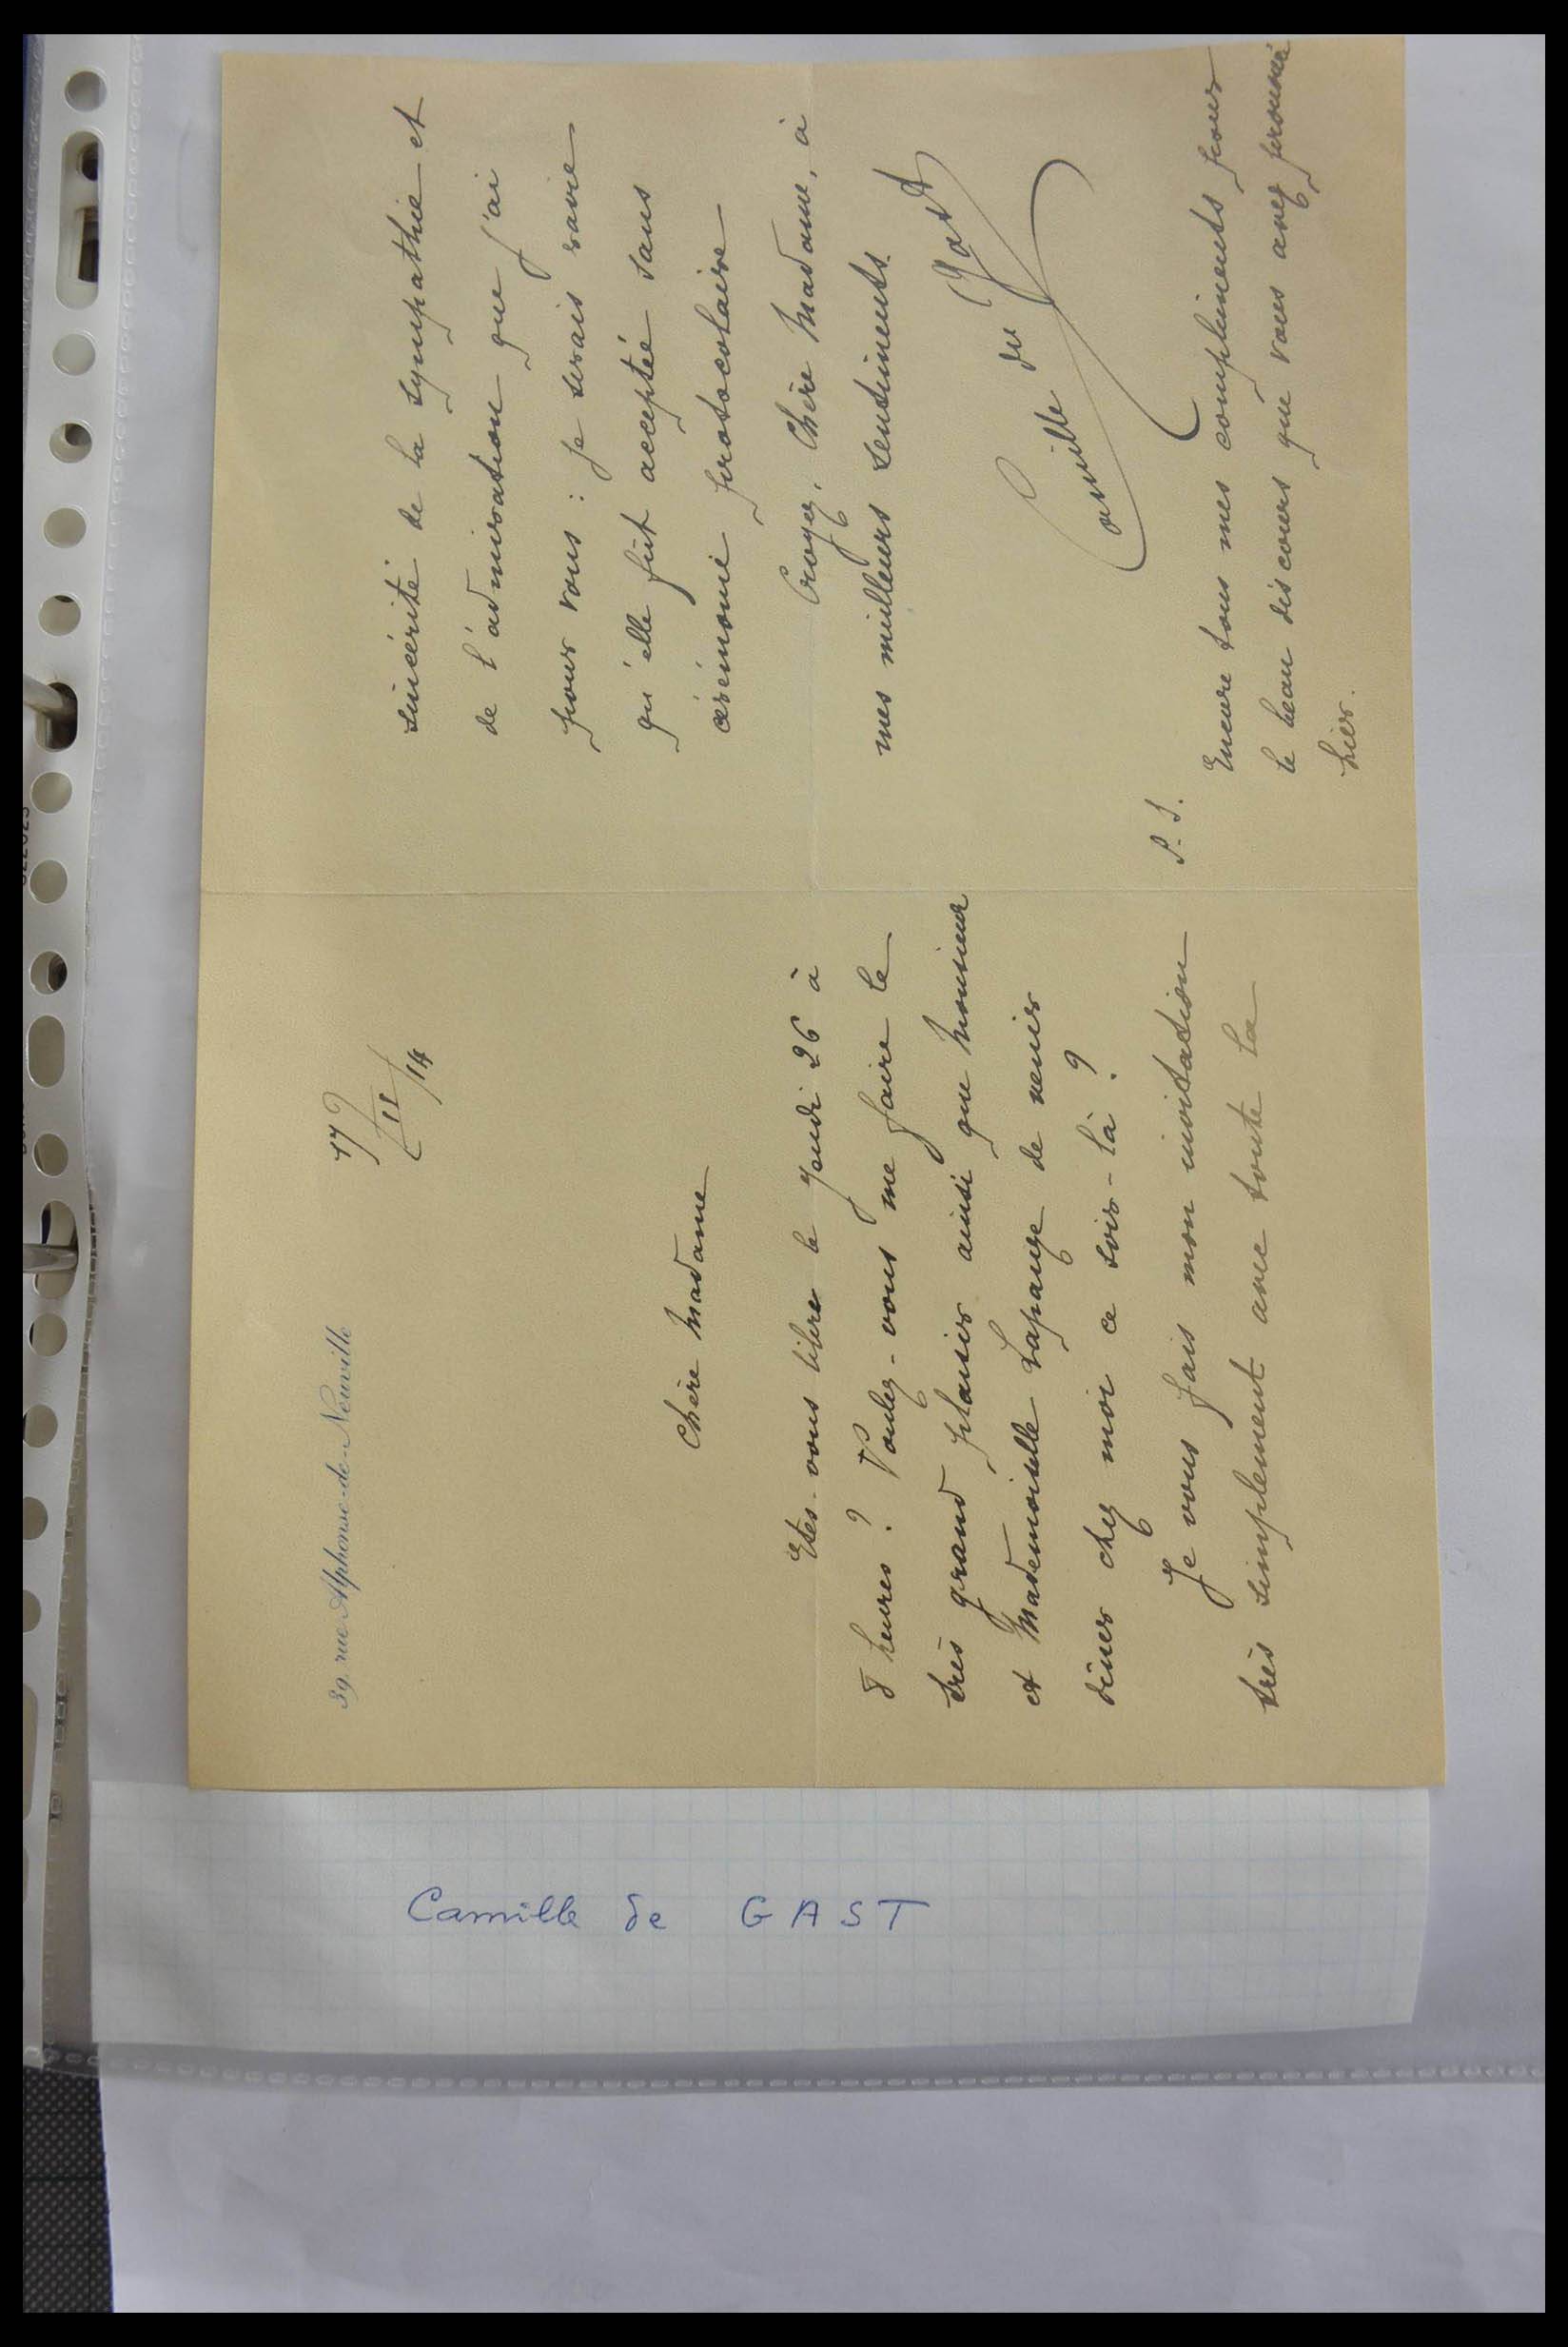 39, rue Alphonse-de-Neuville
17
11
14
Chère Madame
Etes-vous libre le Jeudi 26 à
8 heures ? Voulez-vous me faire le
très grand plaisir ainsi que Monsieur
et Mademoiselle Lapauze de venir
dîner chez moi ce soir-là ?
Je vous fais mon invitation
très simplement avec toute la
sincérité de la sympathie et
de l'admiration que j'ai
pour vous : je serais ravie
qu'elle fût acceptée sans
cérémonie protocolaire
Croyez, Chère Madame, à
mes meilleurs sentiments.
Camille du Gast
P.S.
Encore tous mes compliments pour
le beau discours que vous avez prononcé
hier.
Camille de GAST